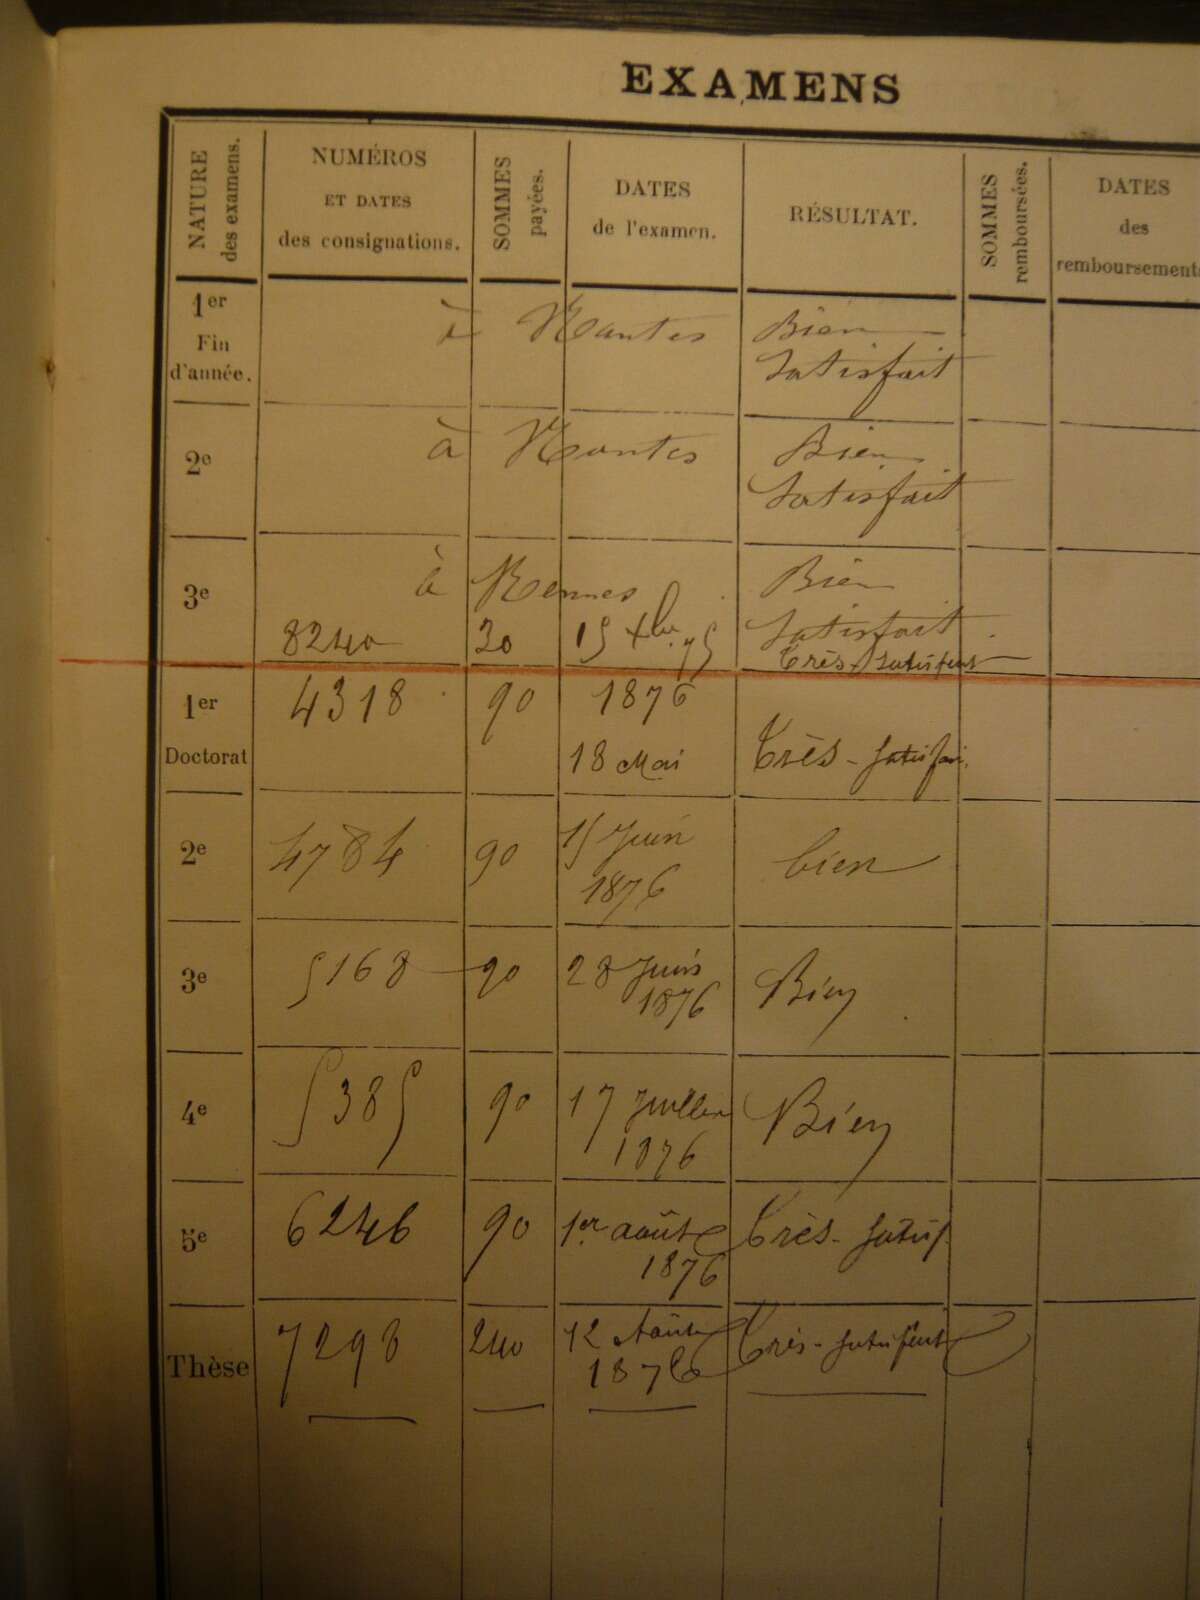 EXAMENS
NATURE des examens.
NUMÉROS
ET DATES
des consignations.
SOMMES payées.
DATES
de l'examen.
RÉSULTAT.
SOMMES remboursées.
DATES
des
remboursements
1er
Fin
d'année.
à Nantes
Bien
Satisfait
2e
à Nantes
Bien
Satisfait
3e
à Rennes
Bien
Satisfait
8240
30
15 Xbre 75
Très Satisfait
1er
Doctorat
4318
90
1876
18 Mai
Très-Satisfai.
2e
4784
90
15 Juin
1876
bien
3e
5168
90
28 Juin
1876
Bien
4e
5385
90
17 Juillet
1876
Bien
5e
6246
90
1er août
1876
Très-Satisf.
Thèse
7298
240
12 Août
1876
Très-Satisfait